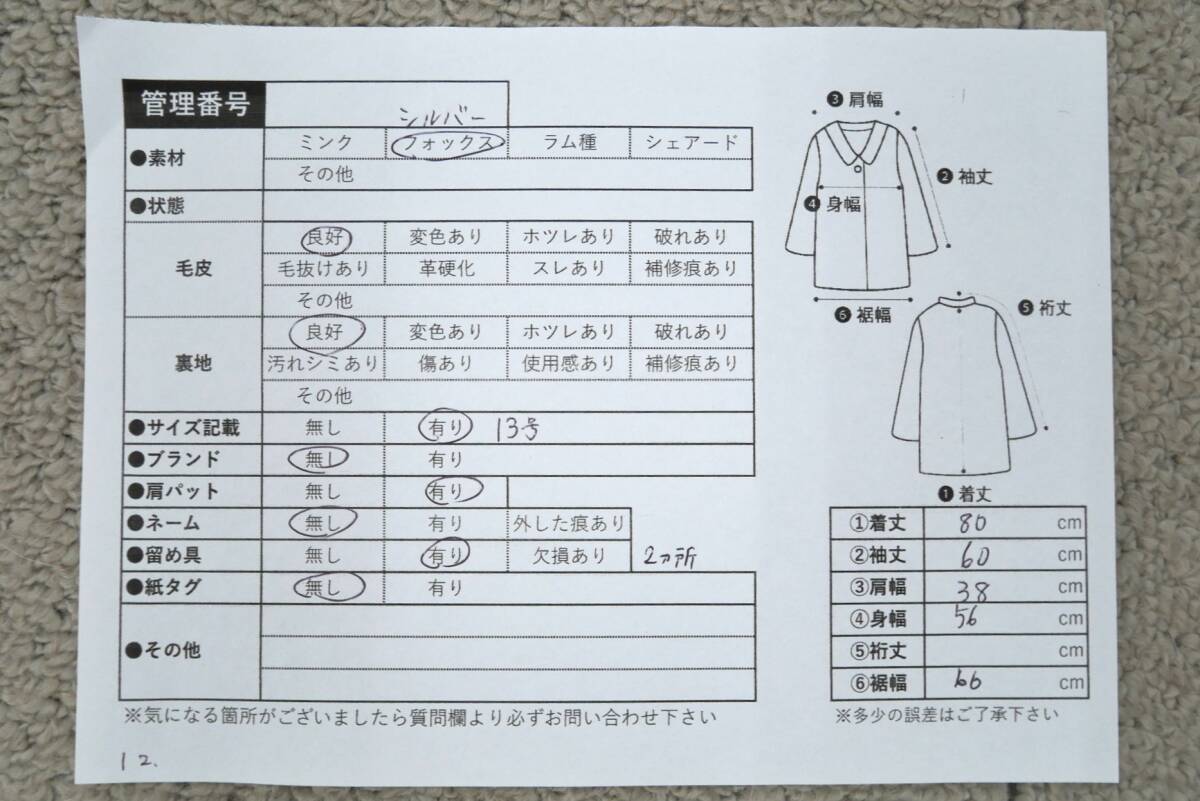 管理番号
シルバー
●素材 ミンク フォックス ラム種 シェアード
その他
●状態
毛皮 良好 変色あり ホツレあり 破れあり
毛抜けあり 革硬化 スレあり 補修痕あり
その他
裏地 良好 変色あり ホツレあり 破れあり
汚れシミあり 傷あり 使用感あり 補修痕あり
その他
●サイズ記載 無し 有り 13号
●ブランド 無し 有り
●肩パット 無し 有り
●ネーム 無し 有り 外した痕あり
●留め具 無し 有り 欠損あり 2ヵ所
●紙タグ 無し 有り
●その他
※気になる箇所がございましたら質問欄より必ずお問い合わせ下さい
12.
❸肩幅
❷袖丈
❹身幅
❻裾幅
❺裄丈
❶着丈
①着丈 80 cm
②袖丈 60 cm
③肩幅 38 cm
④身幅 56 cm
⑤裄丈 cm
⑥裾幅 66 cm
※多少の誤差はご了承下さい